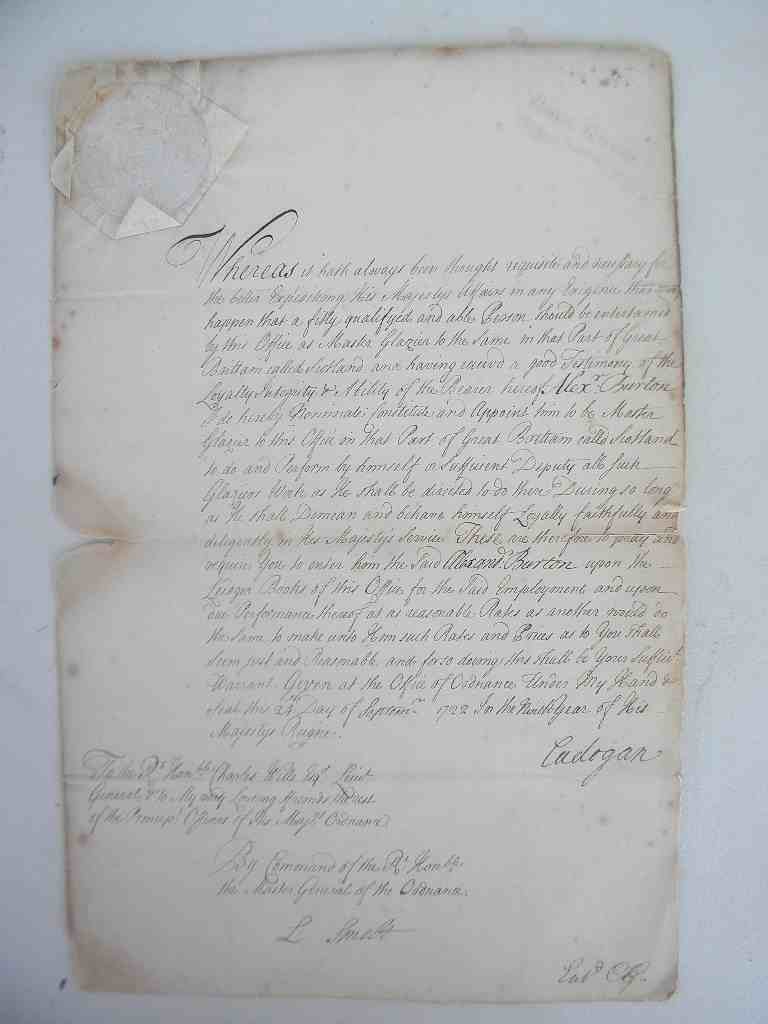 Whereas it hath always been thought requisite and necessary for
the better Expediting His Majestys Affairs in any Exigence that may
happen that a fitly qualifyed and able Person should be entertained
by this Office as Master Glazier to the Same in that Part of Great
Brittain called Scotland and having receivd a good Testimony of the
Loyalty Integrity & Ability of the Bearer hereof Alexr. Burton
I do hereby Nominate Constitute and Appoint him to be Master
Glazier to this Office in that Part of Great Brittain called Scotland
to do and Perform by himself or Sufficient Deputy all such
Glaziers Work as He shall be directed to do there During so long
as He shall Demean and behave himself Loyally faithfully and
diligently in His Majestys Service These are therefore to pray and
require You to enter him the said Alexandr. Burton upon the
Leager Books of this Office for the said Employment and upon
due Performance thereof at as reasonable Rates as another would do
the Same to make unto Him such Rates and Prices as to You shall
seem just and Reasonable, and for so doeing this shall be Your Suffict.
Warrant. Given at the Office of Ordnance Under My Hand &
Seal this Day of Septembr. 1722 In the Ninth Year of His
Majestys Reigne.
Cadogan
To the Rt. Honble. Charles Wills Esqr. Lieut
General, & to My very Loveing friends the rest
of the Principl. Officers of His Majts. Ordnance
By Command of the Rt. Honble.
the Master General of the Ordnance.
L